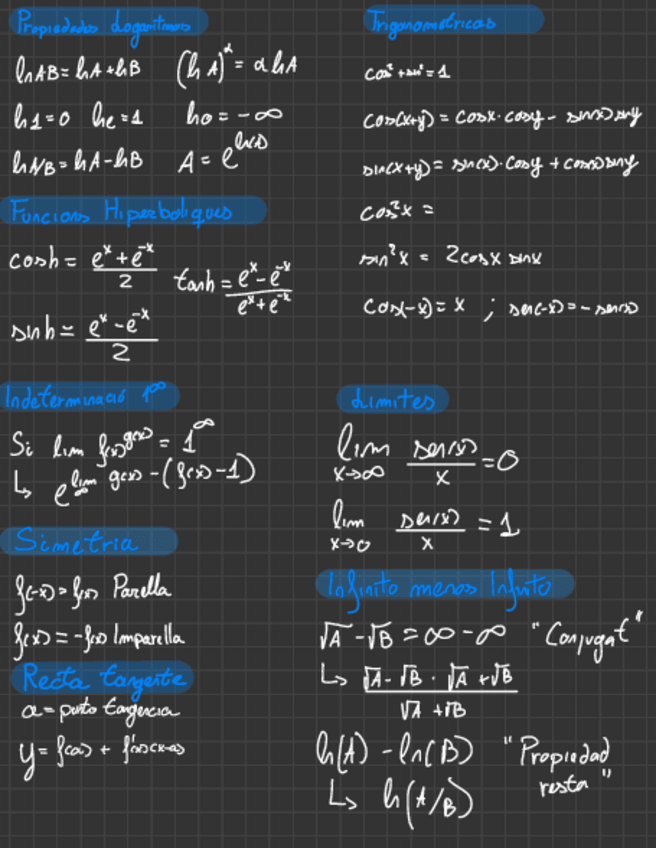 Propiedades Logaritmos
ln AB = ln A + ln B (ln A)^α = α ln A
ln 1 = 0 ln e = 1 ln 0 = -∞
ln A/B = ln A - ln B A = e^ln(A)
Funcions Hiperboliques
cosh = (e^x + e^-x)/2 tanh = (e^x - e^-x)/(e^x + e^-x)
sinh = (e^x - e^-x)/2
Indeterminació 1^∞
Si lim f(x)^g(x) = 1^∞
↳ e^lim ∞ g(x) - (f(x) - 1)
Simetria
f(-x) = f(x) Parella
f(x) = -f(x) Imparella
Recta tangente
a = punto tangencia
y = f(a) + f'(a)(x-a)
Trigonometricas
cos² + sin² = 1
cos(x+y) = cosx · cosy - sin(x) siny
sin(x+y) = sin(x) · cosy + cos(x) siny
cos²x =
sin²x = 2cosx sinx
cos(-x) = x ; sen(-x) = - sen(x)
Limites
lim x→∞ sen(x)/x = 0
lim x→0 sen(x)/x = 1
Infinito menos Infinito
√A - √B = ∞ - ∞ "Conjugat"
↳ √A - √B · √A + √B
√A + √B
ln(A) - ln(B) "Propiedad
resta"
↳ ln(A/B)